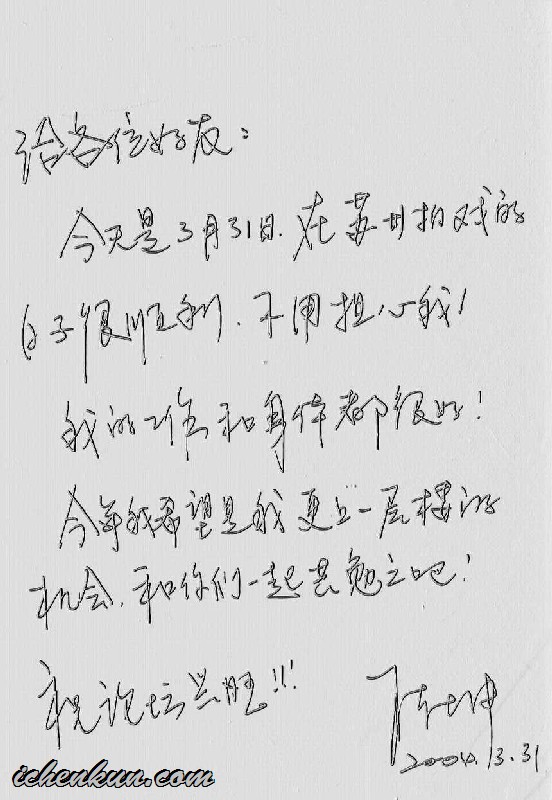 给各位好友：
今天是3月31日.在苏州拍戏的
日子很顺利.不用担心我!
我的工作和身体都很好!
今年我希望是我更上一层楼的
机会.和你们一起共勉之吧!
祝论坛兴旺!!!
陈坤
2004.3.31
ichenkun.com